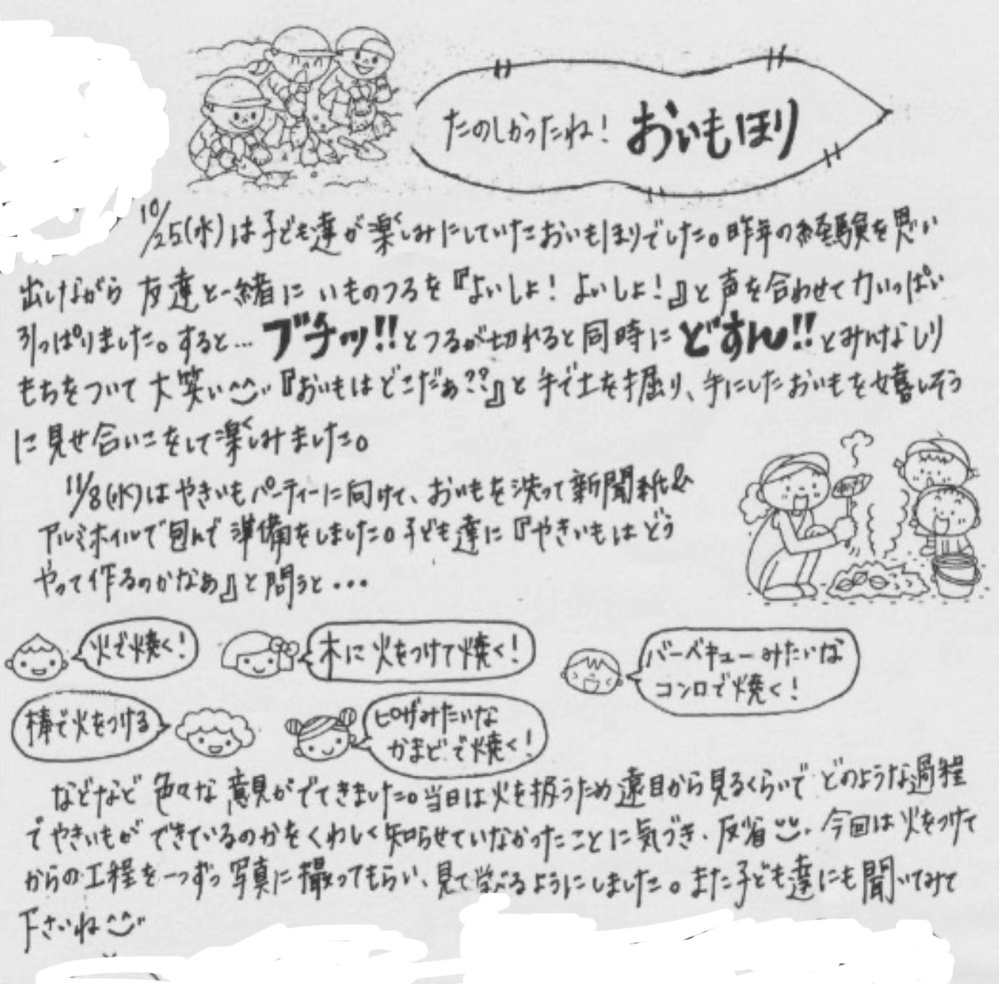 たのしかったね！ おいもほり
10/25(水)は子ども達が楽しみにしていたおいもほりでした。昨年の経験を思い
出しながら 友達と一緒に いものつるを『よいしょ！よいしょ！』と声を合わせて力いっぱい
引っぱりました。すると… ブチッ!!とつるが切れると同時に どすん!!とみんなしり
もちをついて 大笑い^^『おいもはどこだぁ??』と手で土を掘り、手にしたおいもを嬉しそう
に見せ合いこをして楽しみました。
11/8(水)はやきいもパーティーに向けて、おいもを洗って新聞紙&
アルミホイルで包んで準備をしました。子ども達に『やきいもはどう
やって作るのかなぁ』と問うと・・・
火で焼く！
木に火をつけて焼く！
バーベキューみたいな
コンロで焼く！
棒で火をつける
ピザみたいな
かまどで焼く！
などなど 色々な意見がでてきました。当日は火を扱うため遠目から見るくらいで どのような過程
でやきいもができているのかをくわしく知らせていなかったことに気づき、反省。今回は火をつけて
からの工程を一つずつ写真に撮ってもらい、見て学べるようにしました。また子ども達にも聞いてみて
下さいね^^